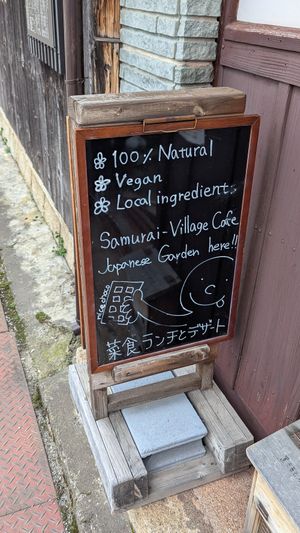 100% Natural
Vegan
Local ingredients
Samurai-Village Cafe
Japanese Garden here!!
rice choco
菜食ランチとデザート